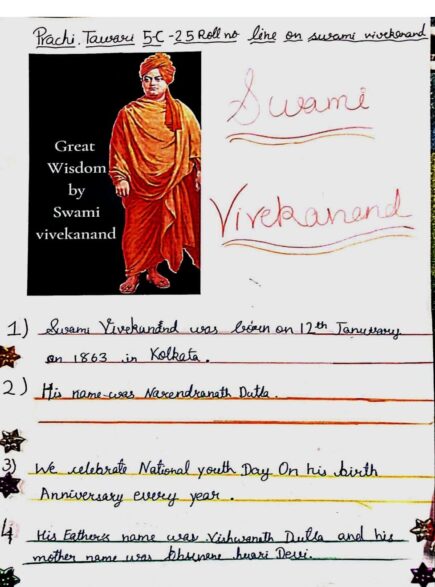 Prachi. Tawari 5-C - 25 Roll no line on swami vivekanand
Great
Wisdom
by
Swami
vivekanand
Swami
Vivekanand
1) Swami Vivekanand was born on 12th Januuary
on 1863 in Kolkata.
2) His name was Narendranath Dutta.
3) We celebrate National youth Day On his birth
Anniversary every year.
4 His Eathers name was Vishwanath Dutta and his
mother name was Devi.